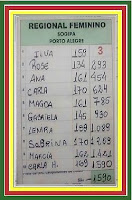 REGIONAL FEMININO
SOGIPA
PORTO ALEGRE
ILVA 159 3
ROSE 134 293
ANA 161 454
CARLA 170 624
MAGDA 161 785
GABRIELA 145 930
LENIRA 159 1089
SABRINA 170
MARCIA 162 1421
CARLA H. 169 1590
1590